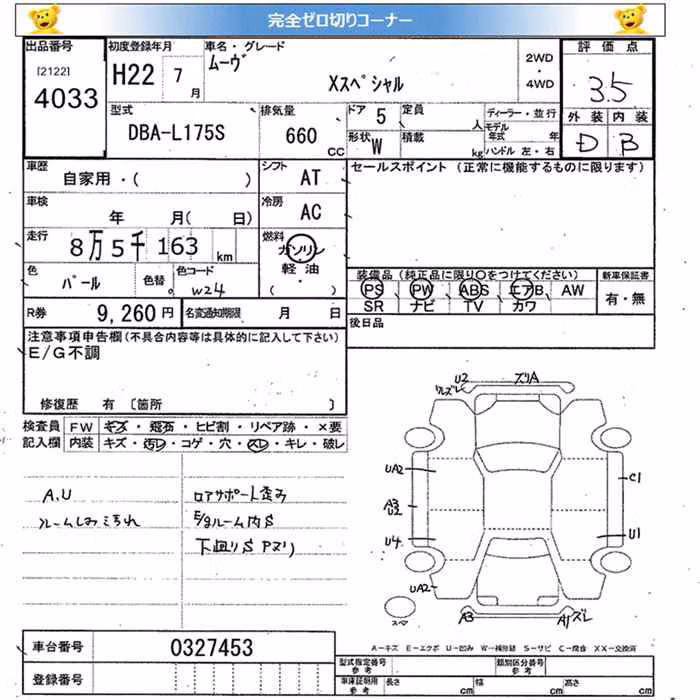 完全ゼロ切りコーナー
出品番号 初度登録年月 車名・グレード 2WD・4WD 評価点
[2122] 4033 H22 7月 ムーヴ Xスペシャル 3.5
型式 DBA-L175S 排気量 660 CC ドア 5 定員 人 ディーラー・並行 外装 内装
形状 W 積載 kg モデル年式 年 ハンドル 左・右 D B
車歴 自家用・( ) シフト AT セールスポイント (正常に機能するものに限ります)
車検 年 月( 日) 冷房 AC
走行 8万5千163 km 燃料 ガソリン・軽油・( )
色 パール 色替 色コード W24
装備品 (純正品に限り○をつけてください) 新車保証書
PS PW ABS エアB AW 有・無
SR ナビ TV カワ
R券 9,260円 名変通知期限 月 日 後日品
注意事項申告欄(不具合内容等は具体的に記入して下さい)
E/G不調
修復歴 有 〔箇所 〕
検査員記入欄 FW キズ・飛石・ヒビ割・リペア跡・×要
内装 キズ・汚レ・コゲ・穴・スレ・キレ・破レ
A.U リアサポート歪み
ルームしみ汚れ E/gルーム内S
下廻りS Pヌリ
U2 ズリA
ワレズレ
UA2 C1
A3
U2
U4 U1
UA2
スマ A3 A1ズレ
A-キズ E-エクボ U-凹み W-補修跡 S-サビ C-腐食 XX-交換済
車台番号 0327453
登録番号
型式指定番号 参考 類別区分番号 参考
車庫証明用 参考 長さ cm 幅 cm 高さ cm